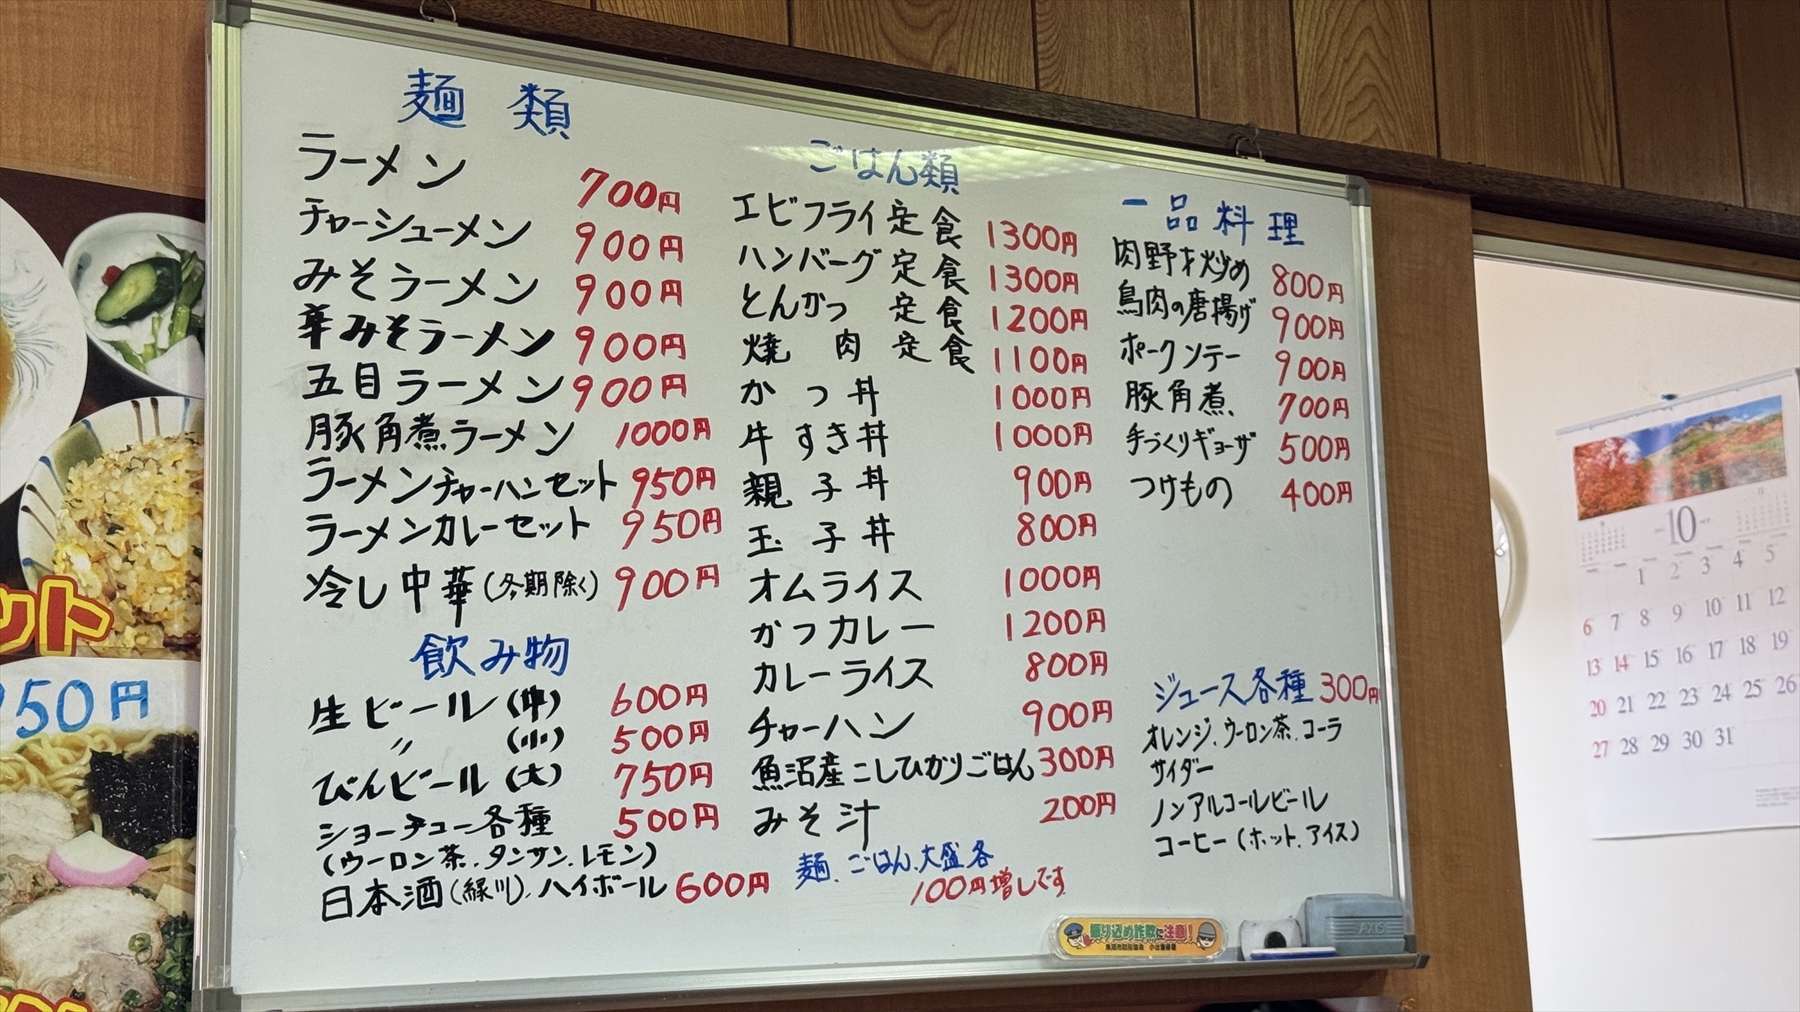 麺類
ラーメン 700円
チャーシューメン 900円
みそラーメン 900円
辛みそラーメン 900円
五目ラーメン 900円
豚角煮ラーメン 1000円
ラーメンチャーハンセット 950円
ラーメンカレーセット 950円
冷し中華(冬期除く) 900円
飲み物
生ビール(中) 600円
〃 (小) 500円
びんビール(大) 750円
ショーチュー各種 500円
(ウーロン茶.タンサン.レモン)
日本酒(緑川).ハイボール 600円
ごはん類
エビフライ定食 1300円
ハンバーグ定食 1300円
とんかつ 定食 1200円
焼肉定食 1100円
かつ丼 1000円
牛すき丼 1000円
親子丼 900円
玉子丼 800円
オムライス 1000円
かつカレー 1200円
カレーライス 800円
チャーハン 900円
魚沼産こしひかりごはん 300円
みそ汁 200円
麺.ごはん.大盛各
100円増しです
一品料理
肉野才炒め 800円
鳥肉の唐揚げ 900円
ポークソテー 900円
豚角煮 700円
手づくりギョーザ 500円
つけもの 400円
ジュース各種 300円
オレンジ.ウーロン茶.コーラ
サイダー
ノンアルコールビール
コーヒー(ホット.アイス)
振り込め詐欺に注意!
AXIS
ット
950円
10
1 2 3 4 5
6 7 8 9 10 11 12
13 14 15 16 17 18 19
20 21 22 23 24 25 26
27 28 29 30 31